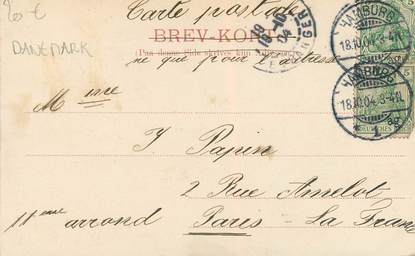 20 €
Carte postale
DANEMARK
BREV-KORT
(Paa denne Side skrives kun Adressen)
ne que pour l'adresse
HAMBURG
18.10.04.3-4N.
HAMBURG
18.10.04.3-4N.
1
DEUTSCHES
Mme
J Papin
2 Rue Amelot
11eme arrond Paris - La France